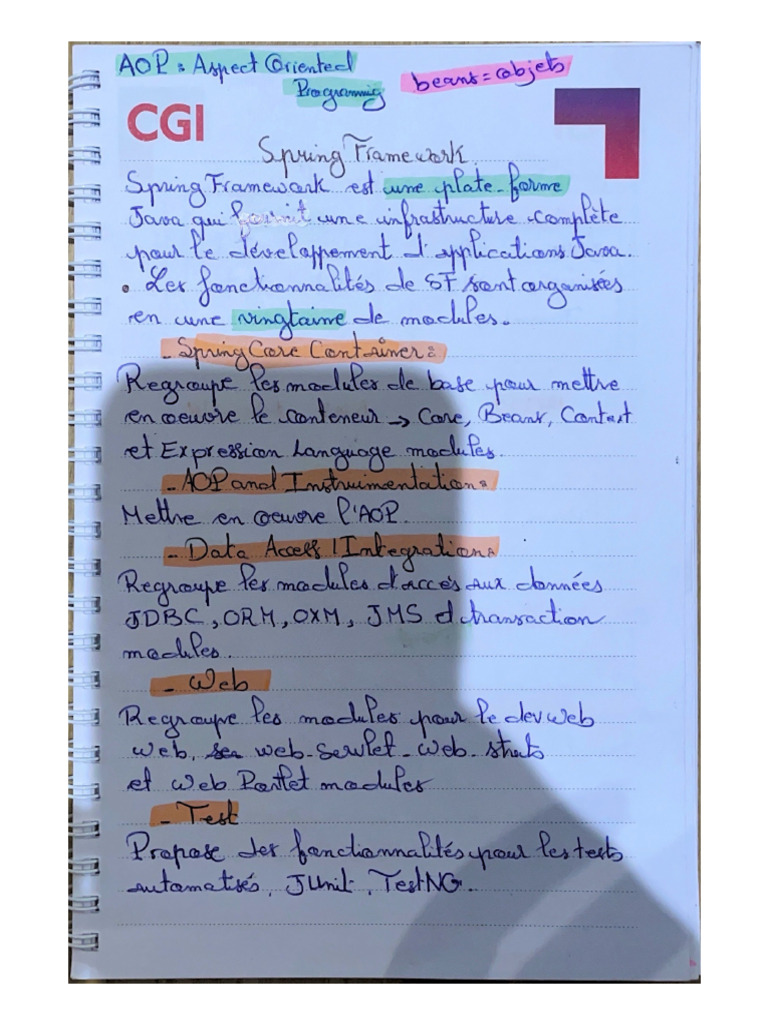 AOP : Aspect Oriented
Programming
beans = objets
CGI
Spring Framework.
Spring Framework est une plate-forme
Java qui fournit une infrastructure complète
pour le développement d'applications Java.
• Les fonctionnalités de SF sont organisées
en une vingtaine de modules.
- Spring Core Container :
Regroupe les modules de base pour mettre
en oeuvre le conteneur → Core, Beans, Context
et Expression Language modules.
- AOP and Instrumentation :
Mettre en oeuvre l'AOP.
- Data Access / Integration :
Regroupe les modules d'accès aux données
JDBC, ORM, OXM, JMS et transaction
modules.
- Web
Regroupe les modules pour le dev web
web, web-Servlet-web-struts
et web Portlet modules
- Test
Propose des fonctionnalités pour les tests
automatisés, JUnit, TestNG.